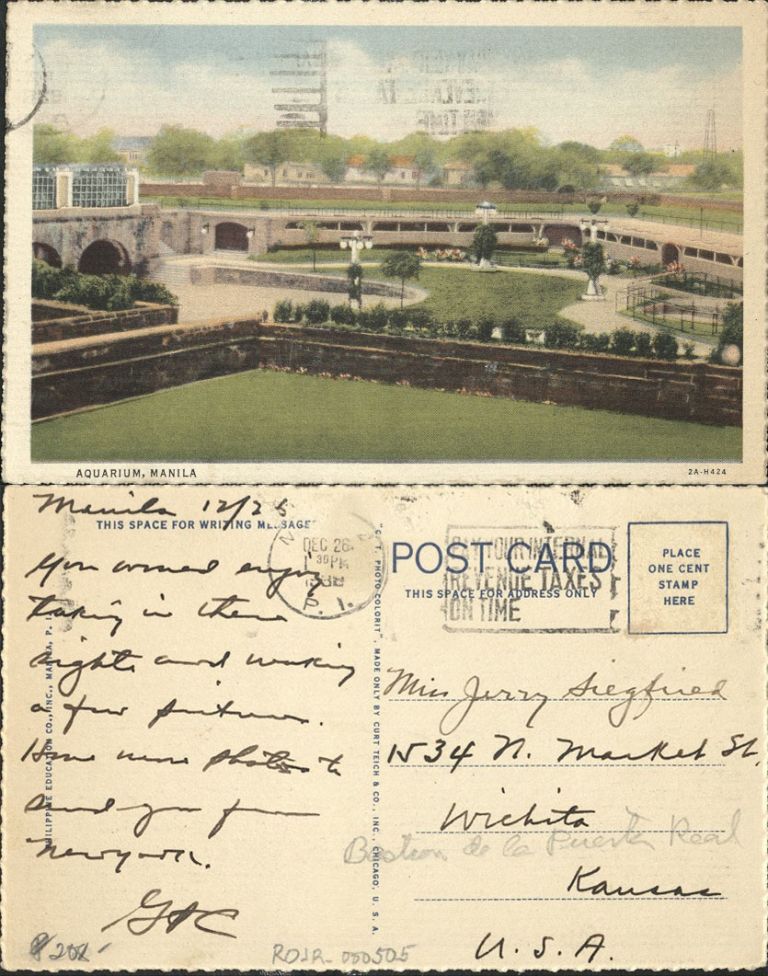 AQUARIUM, MANILA
2A-H424
Manila 12/25
THIS SPACE FOR WRITING MESSAGE
You would enjoy
taking in these
sights and making
a few pictures.
Have more photos to
send you from
New York.
PHILIPPINE EDUCATION CO., INC., MANILA, P. I.
"C. T. PHOTO-COLORIT" MADE ONLY BY CURT TEICH & CO., INC., CHICAGO, U. S. A.
DEC 26
1 30 PM
P. I.
POST CARD
THIS SPACE FOR ADDRESS ONLY
PAY YOUR INTERNAL
REVENUE TAXES
ON TIME
PLACE
ONE CENT
STAMP
HERE
Miss Jerry Siegfried
1534 N. Market St.
Wichita
Bastion de la Puerta Real
Kansas
U. S. A.
ROJR-000505